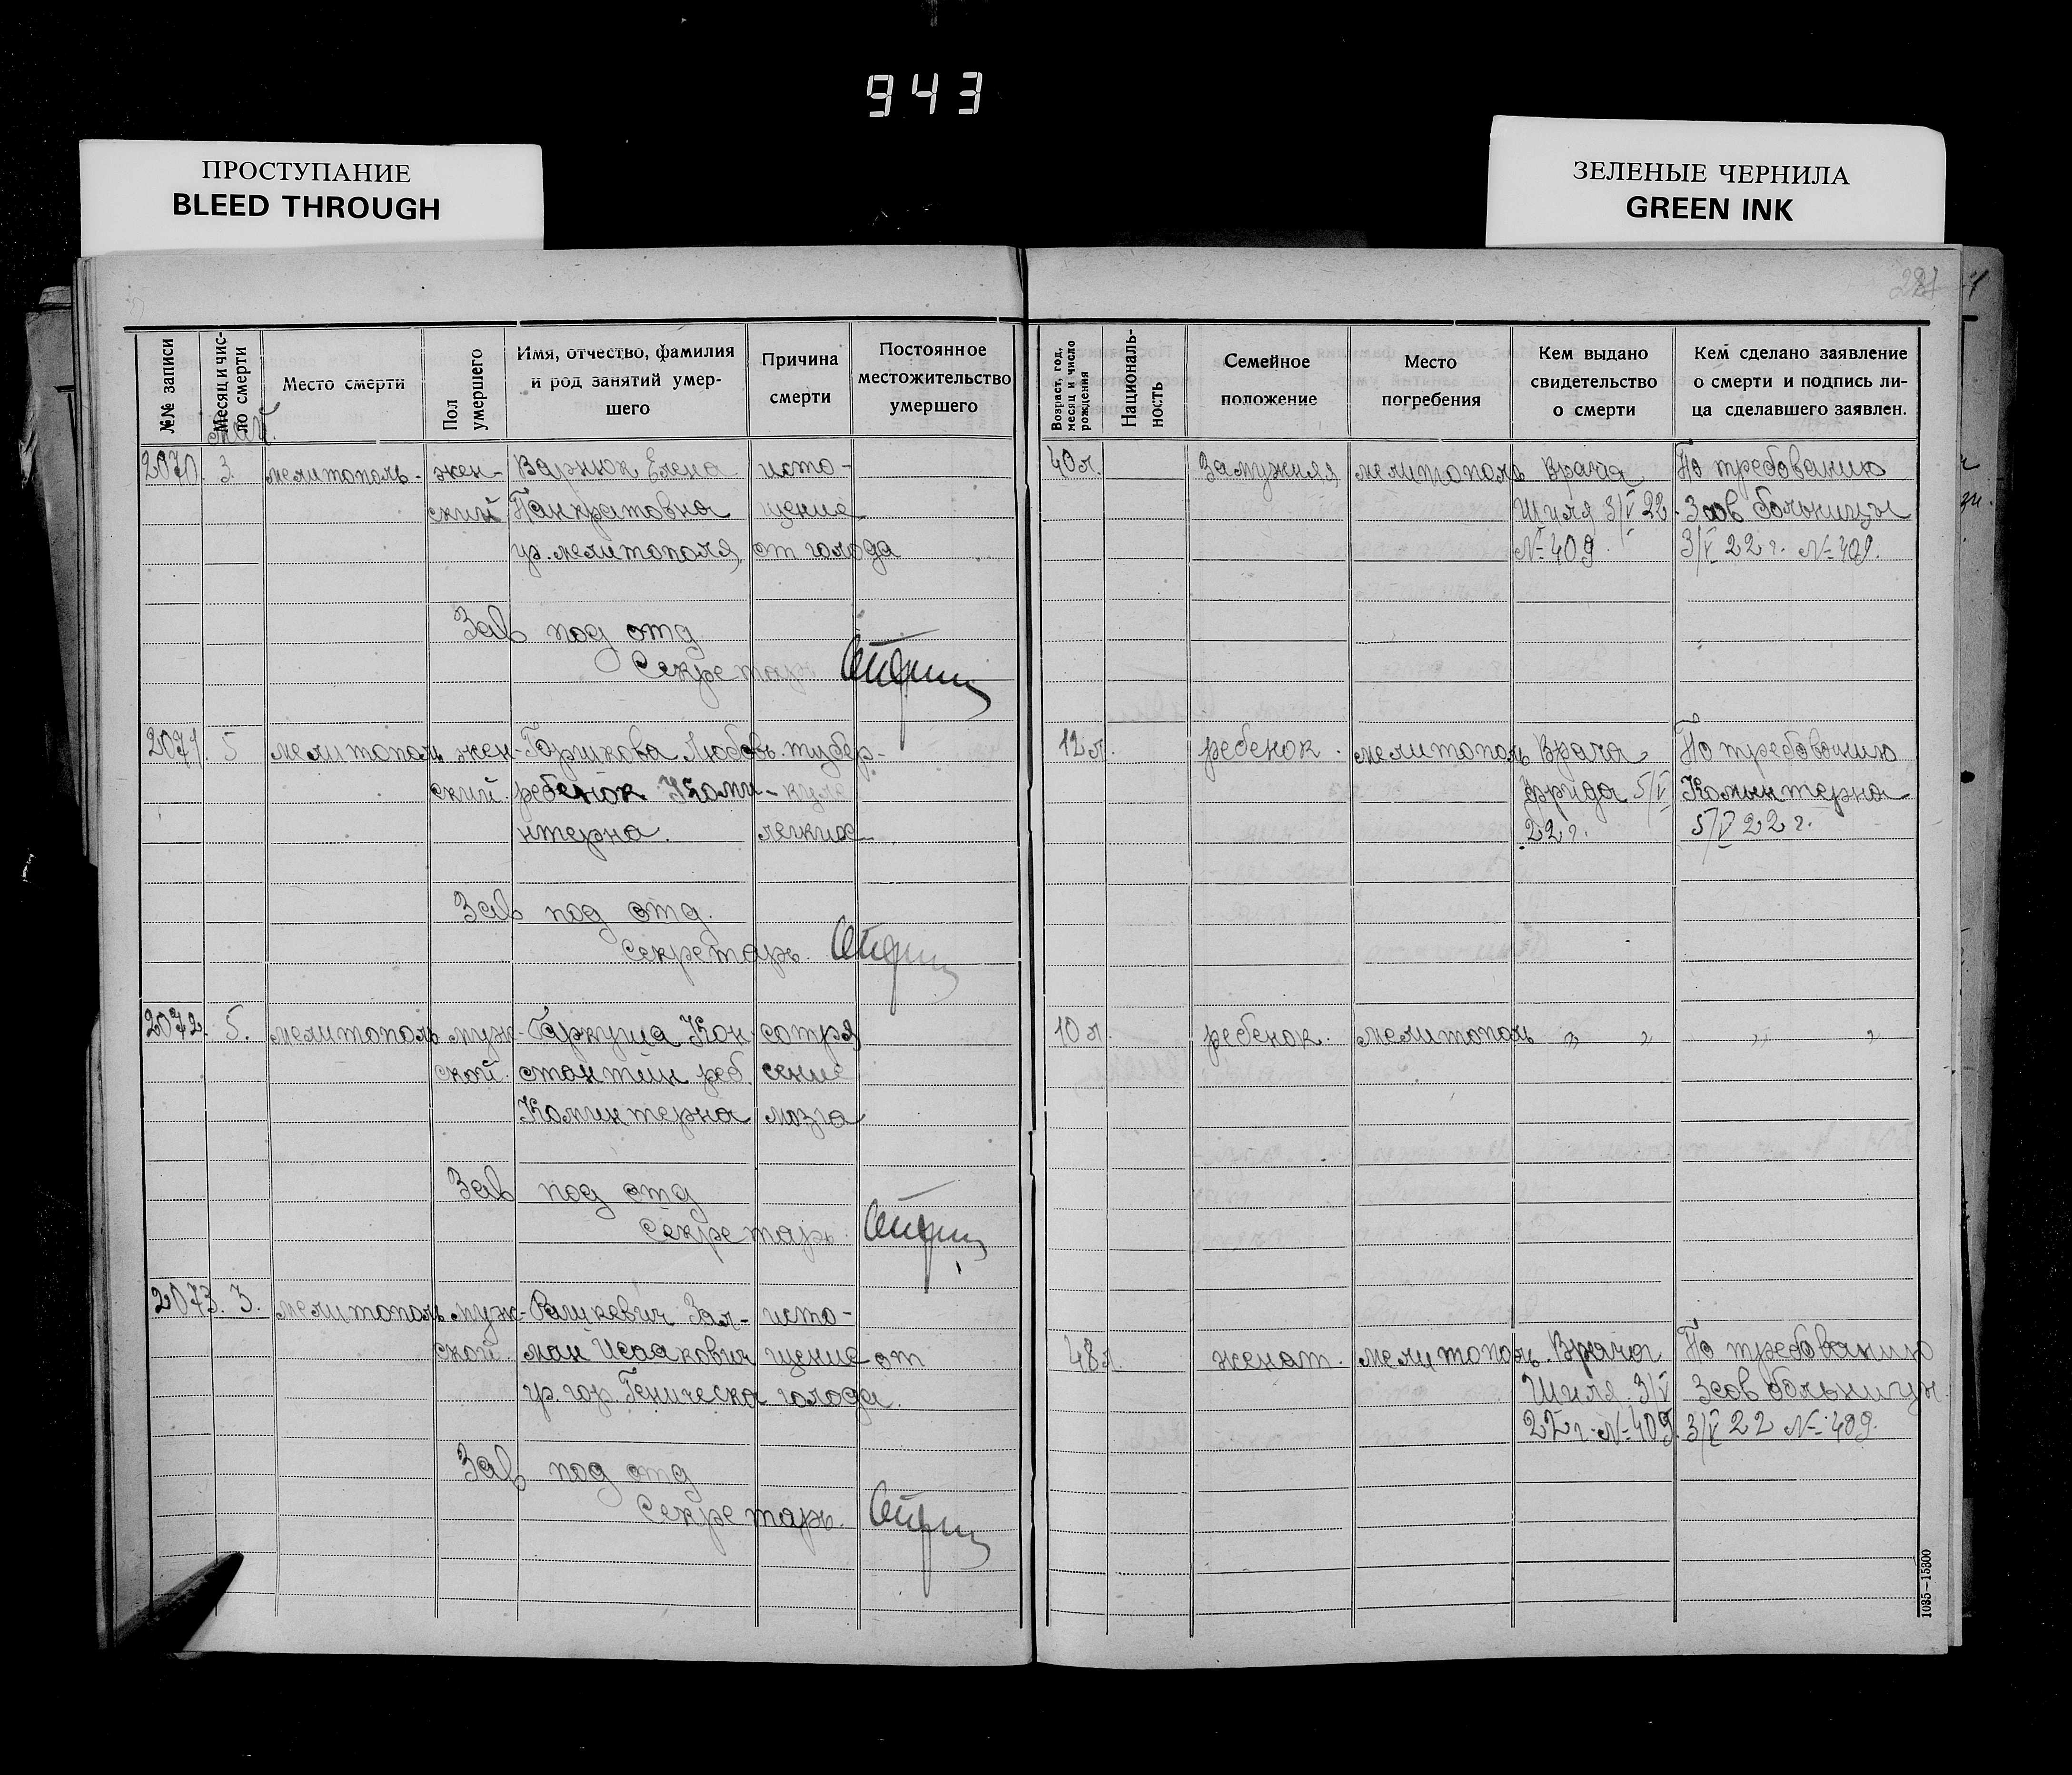 943
ПРОСТУПАНИЕ
BLEED THROUGH
ЗЕЛЕНЫЕ ЧЕРНИЛА
GREEN INK
№№ записи
Месяц и чис-
ло смерти
Место смерти
Пол
умершего
Имя, отчество, фамилия
и род занятий умер-
шего
Причина
смерти
Постоянное
местожительство
умершего
Возраст, год,
месяц и число
рождения
Националь-
ность
Семейное
положение
Место
погребения
Кем выдано
свидетельство
о смерти
Кем сделано заявление
о смерти и подпись ли-
ца сделавшего заявлен.
май.
2070. 3. мелитополь. жен- Варнюк Елена исто- 40 л. Замужняя мелитополь Врача По требованию
ский Панкратовна щение Шиля 3/V 22. Зав больницы
ур. мелитополя от голода № 409 3/V 22 г. № 409.
Зав под отд
Секретарь
2071. 5 мелитополь жен- Горшкова Любовь тубер- 12 л. ребенок. мелитополь Врача По требованию
ский. ребенок Коми- кулез Фрида 5/V Коминтерна
нтерна. легких 22 г. 5/V 22 г.
Зав под отд.
Секретарь.
2072. 5. мелитополь муж- Гаркуша Кон- сотря 10 л. ребенок. мелитополь „ „ „ „
ской. стантин реб. сение
Коминтерна мозга
Зав под отд
Секретарь.
2073. 3. мелитополь муж- Рашкевич Зал- исто-
ской ман Исаакович щение от 48 л. женат. мелитополь. Врача По требованию
ур. гор. Геническа голода. Шиля 3/V Зав больницы
22 г. № 409. 3/V 22 № 409.
Зав под отд
Секретарь.
1035—15300